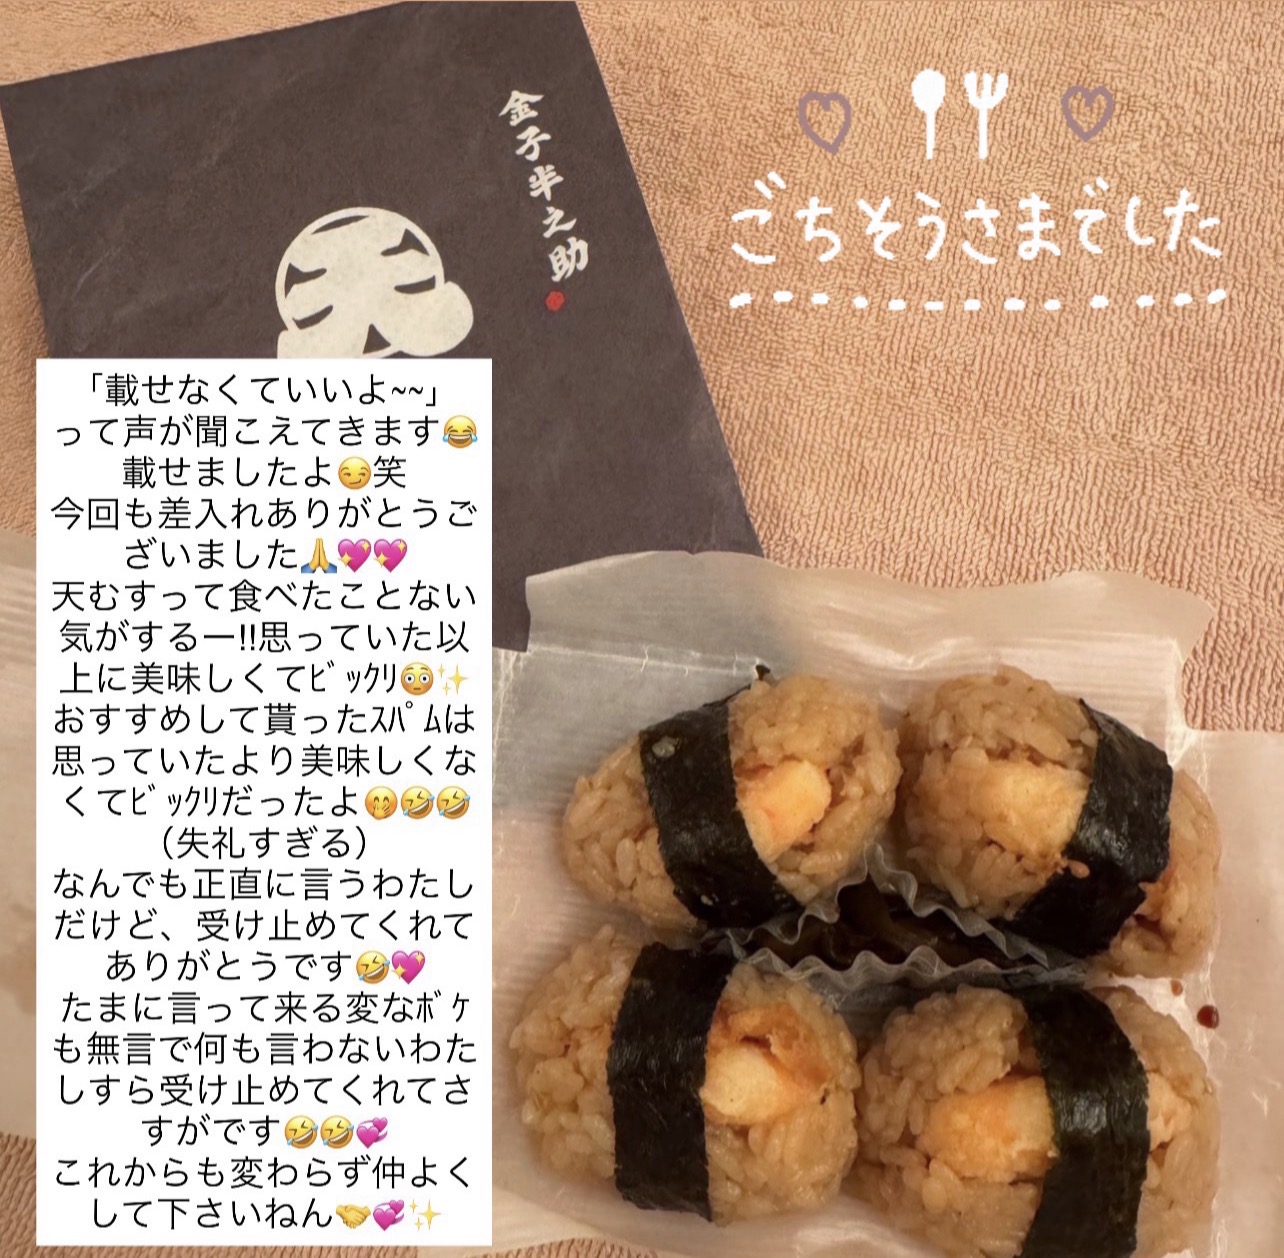 金子半之助
ごちそうさまでした
「載せなくていいよ~~」
って声が聞こえてきます😂
載せましたよ😏笑
今回も差入れありがとうご
ざいました🙏💖💖
天むすって食べたことない
気がするー!!思っていた以
上に美味しくてﾋﾞｯｸﾘ😳✨
おすすめして貰ったｽﾊﾟﾑは
思っていたより美味しくな
くてﾋﾞｯｸﾘだったよ🤭🤣🤣
（失礼すぎる）
なんでも正直に言うわたし
だけど、受け止めてくれて
ありがとうです🤣💖
たまに言って来る変なﾎﾞｹ
も無言で何も言わないわた
しすら受け止めてくれてさ
すがです🤣🤣💞
これからも変わらず仲よく
して下さいねん🤝💞✨